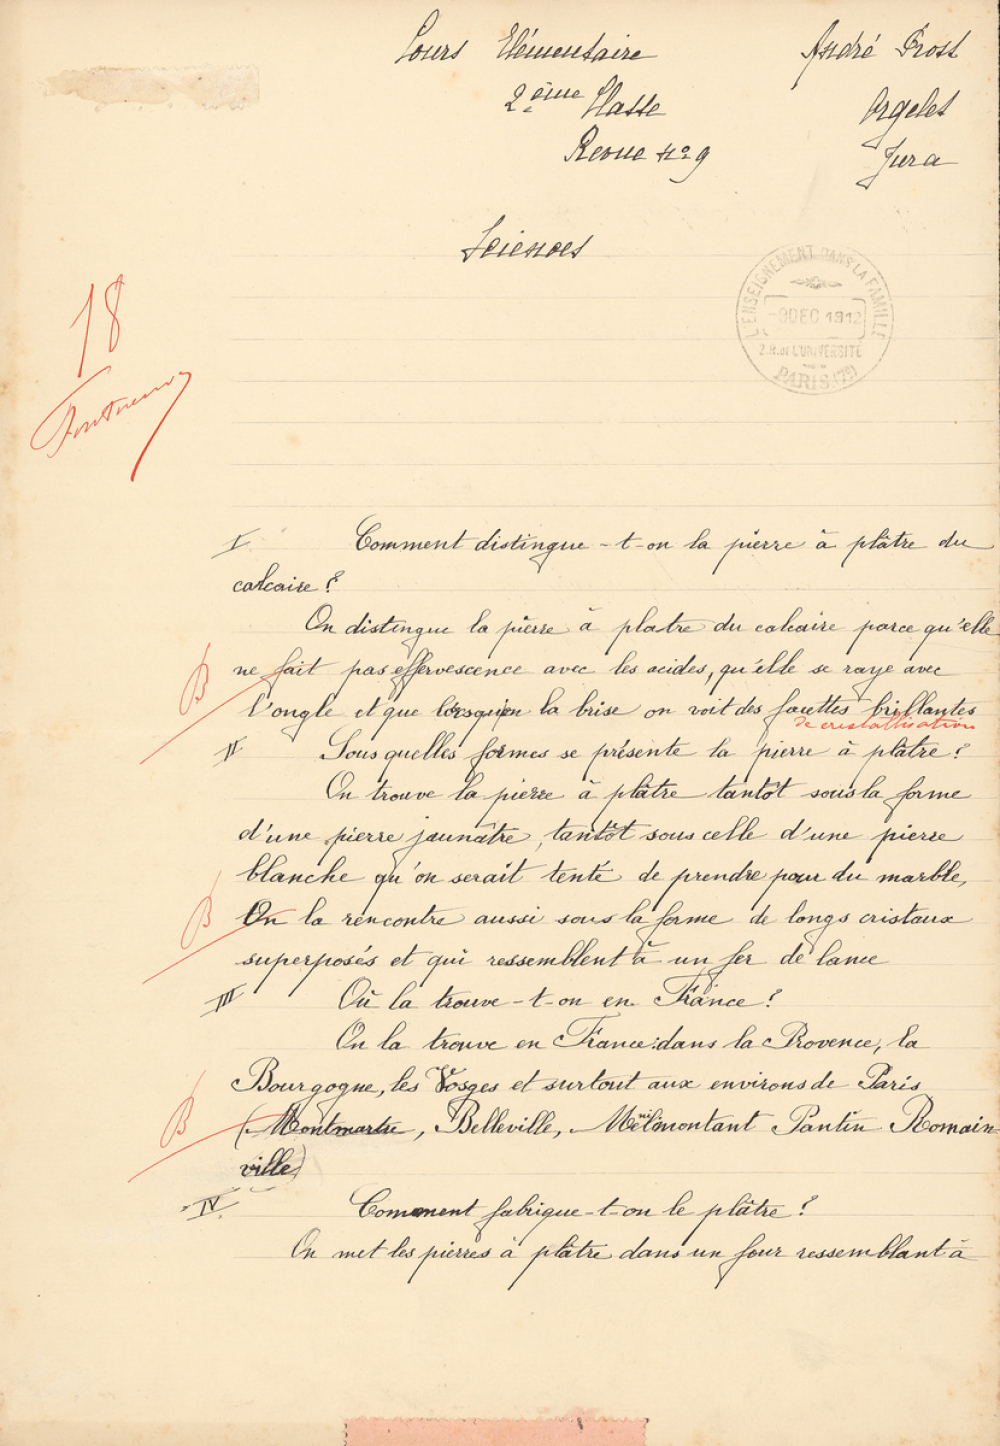 Cours Elémentaire
André Prost
2ème Classe
Orgelet
Revue no 9
Jura
Sciences
L'ENSEIGNEMENT DANS LA FAMILLE
-9 DEC 1912
2.R. de L'UNIVERSITÉ
PARIS (7e)
18
I Comment distingue-t-on la pierre à plâtre du
calcaire ?
On distingue la pierre à platre du calcaire parce qu'elle
B ne fait pas effervescence avec les acides, qu'elle se raye avec
l'ongle et que lorsqu'on la brise on voit des facettes brillantes
de cristallisation
II Sous quelles formes se présente la pierre à plâtre ?
On trouve la pierre à plâtre tantôt sous la forme
d'une pierre jaunâtre, tantôt sous celle d'une pierre
blanche qu'on serait tenté de prendre pour du marble,
B On la rencontre aussi sous la forme de longs cristaux
superposés et qui ressemblent à un fer de lance
III Où la trouve-t-on en France ?
On la trouve en France : dans la Provence, la
Bourgogne, les Vosges et surtout aux environs de Paris
B (Montmartre, Belleville, Ménilmontant Pantin Romain
ville)
IV Comment fabrique-t-on le plâtre ?
On met les pierres à plâtre dans un four ressemblant à